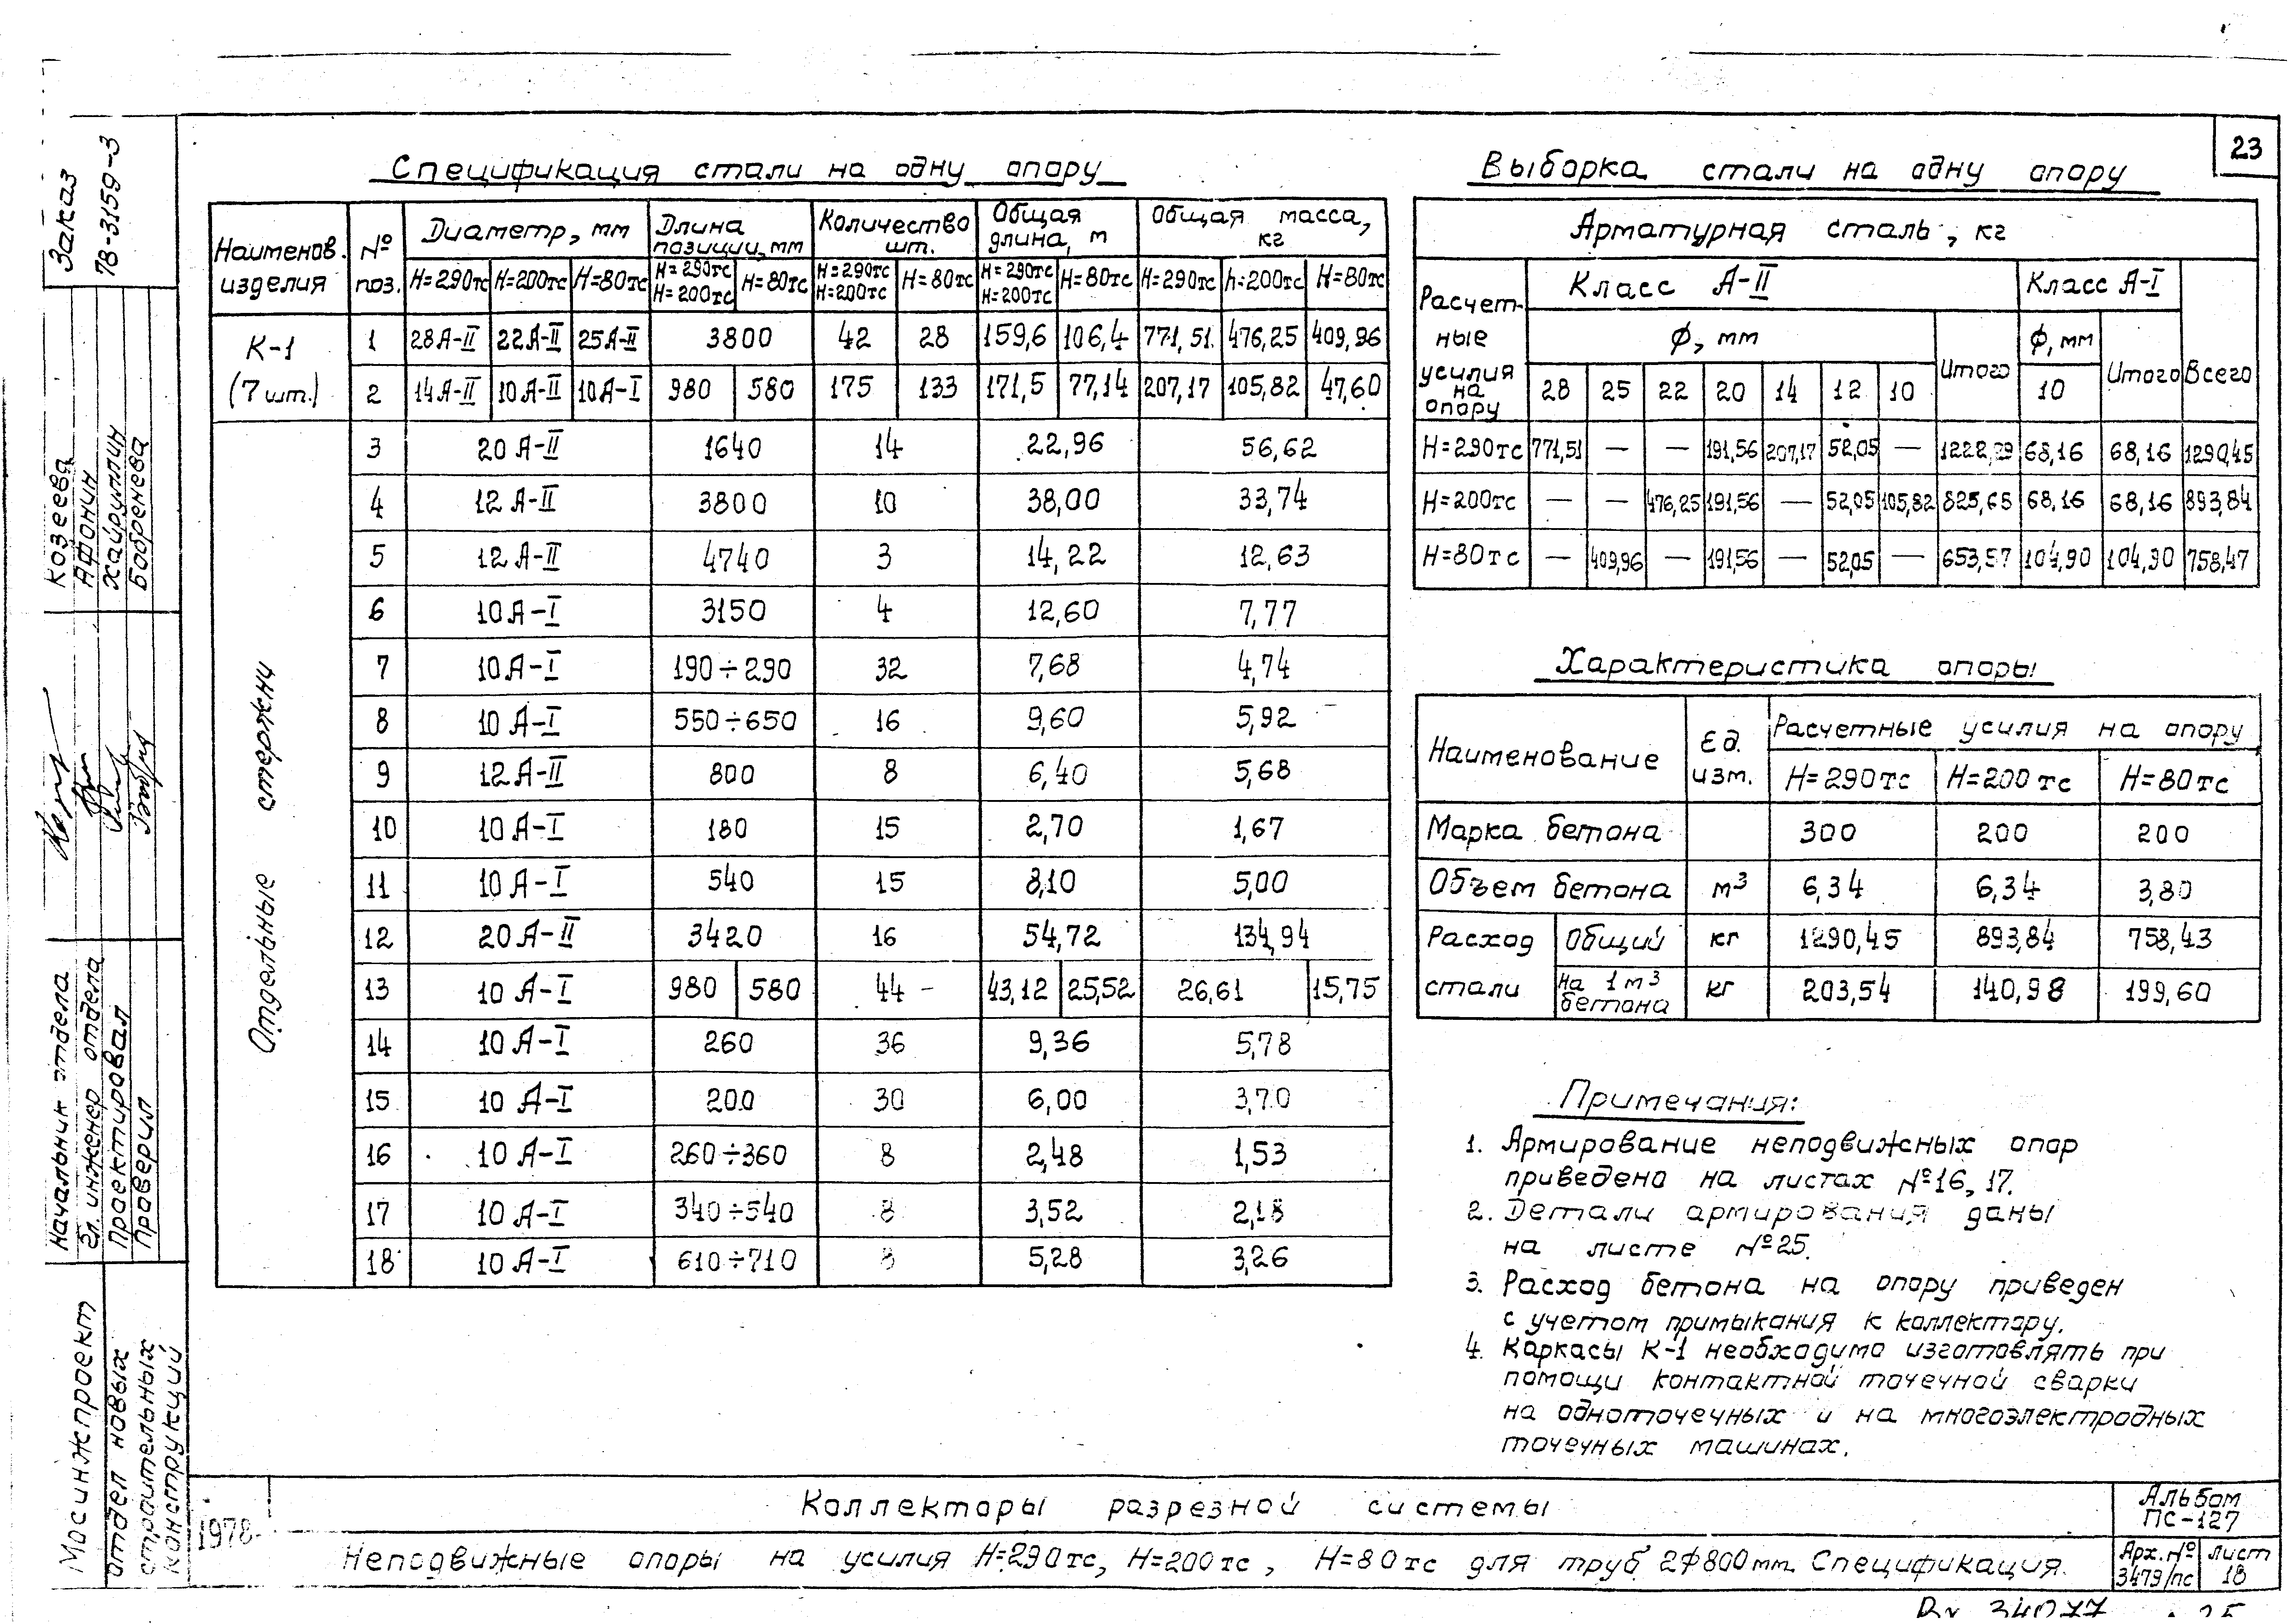 23
Спецификация стали на одну опору
Наименов. изделия | № поз. | Диаметр, мм | Длина позиции, мм | Количество шт. | Общая длина, м | Общая масса, кг
H=290тс | H=200тс | H=80тс | H=290тс H=200тс | H=80тс | H=290тс H=200тс | H=80тс | H=290тс H=200тс | H=80тс | H=290тс | h=200тс | H=80тс
К-1 (7 шт.) | 1 | 28А-II | 22А-II | 25А-II | 3800 | 42 | 28 | 159,6 | 106,4 | 771,51 | 476,25 | 409,96
2 | 14А-II | 10А-II | 10А-I | 980 | 580 | 175 | 133 | 171,5 | 77,14 | 207,17 | 105,82 | 47,60
Отдельные стержни
3 | 20А-II | 1640 | 14 | 22,96 | 56,62
4 | 12А-II | 3800 | 10 | 38,00 | 33,74
5 | 12А-II | 4740 | 3 | 14,22 | 12,63
6 | 10А-I | 3150 | 4 | 12,60 | 7,77
7 | 10А-I | 190÷290 | 32 | 7,68 | 4,74
8 | 10А-I | 550÷650 | 16 | 9,60 | 5,92
9 | 12А-II | 800 | 8 | 6,40 | 5,68
10 | 10А-I | 180 | 15 | 2,70 | 1,67
11 | 10А-I | 540 | 15 | 8,10 | 5,00
12 | 20А-II | 3420 | 16 | 54,72 | 134,94
13 | 10А-I | 980 | 580 | 44 - | 43,12 | 25,52 | 26,61 | 15,75
14 | 10А-I | 260 | 36 | 9,36 | 5,78
15 | 10А-I | 200 | 30 | 6,00 | 3,70
16 | 10А-I | 260÷360 | 8 | 2,48 | 1,53
17 | 10А-I | 340÷540 | 8 | 3,52 | 2,18
18 | 10А-I | 610÷710 | 8 | 5,28 | 3,26
Выборка стали на одну опору
Расчетные усилия на опору | Арматурная сталь, кг
Класс А-II | Класс А-I | Всего
ф, мм | Итого | ф, мм | Итого
28 | 25 | 22 | 20 | 14 | 12 | 10 | 10
H=290тс | 771,51 | — | — | 191,56 | 207,17 | 52,05 | — | 1222,29 | 68,16 | 68,16 | 1290,45
H=200тс | — | — | 476,25 | 191,56 | — | 52,05 | 105,82 | 825,68 | 68,16 | 68,16 | 893,84
H=80тс | — | 409,96 | — | 191,56 | — | 52,05 | — | 653,57 | 104,90 | 104,90 | 758,47
Характеристика опоры
Наименование | Ед. изм. | Расчетные усилия на опору
H=290тс | H=200тс | H=80тс
Марка бетона | 300 | 200 | 200
Объем бетона | м³ | 6,34 | 6,34 | 3,80
Расход стали | Общий | кг | 1290,45 | 893,84 | 758,43
На 1м³ бетона | кг | 203,54 | 140,98 | 199,60
Примечания:
1. Армирование неподвижных опор
приведено на листах №16, 17.
2. Детали армирования даны
на листе №25.
3. Расход бетона на опору приведен
с учетом примыкания к коллектору.
4. Каркасы К-1 необходимо изготовлять при
помощи контактной точечной сварки
на одноточечных и на многоэлектродных
точечных машинах.
Заказ
78-3159-3
Козеева
Афонин
Хайруллин
Бобренева
Начальник отдела
Гл. инженер отдела
Проектировал
Проверил
Мосинжпроект
отдел новых
строительных
конструкций
1978
Коллекторы разрезной системы
Неподвижные опоры на усилия H=290тс, H=200тс, H=80тс для труб 2ф800мм. Спецификация.
Альбом
ПС-127
Арх. №
3479/пс
Лист
18
Вх 34077